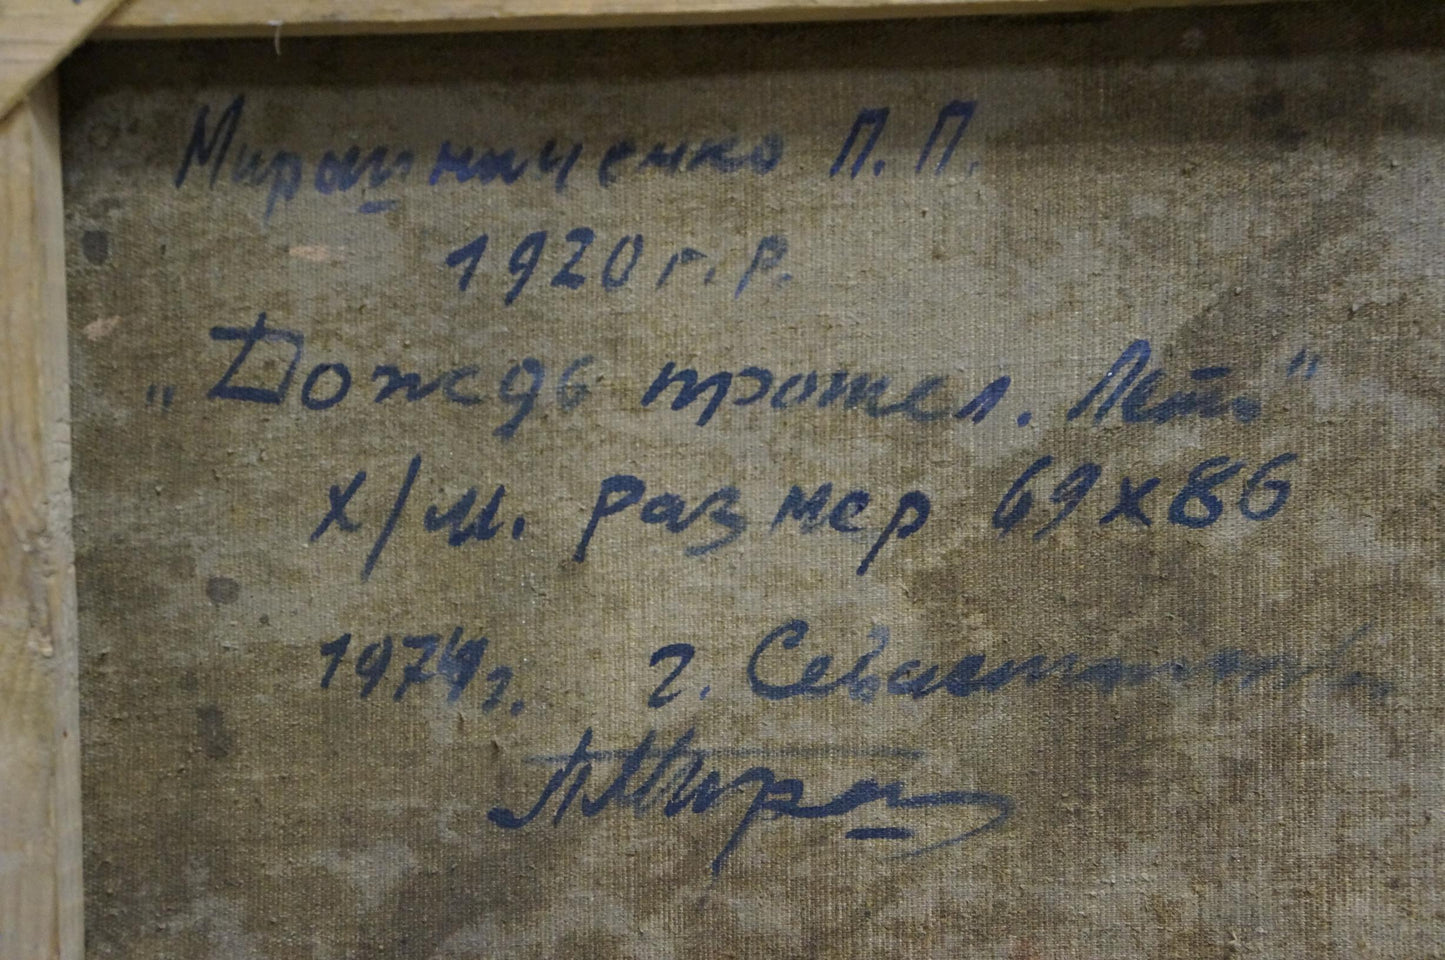 Мирошниченко П. П.
1920 г. р.
„Дождь прошел. Лето"
х/м. размер 69х86
1974г. г. Севастополь
П Миро